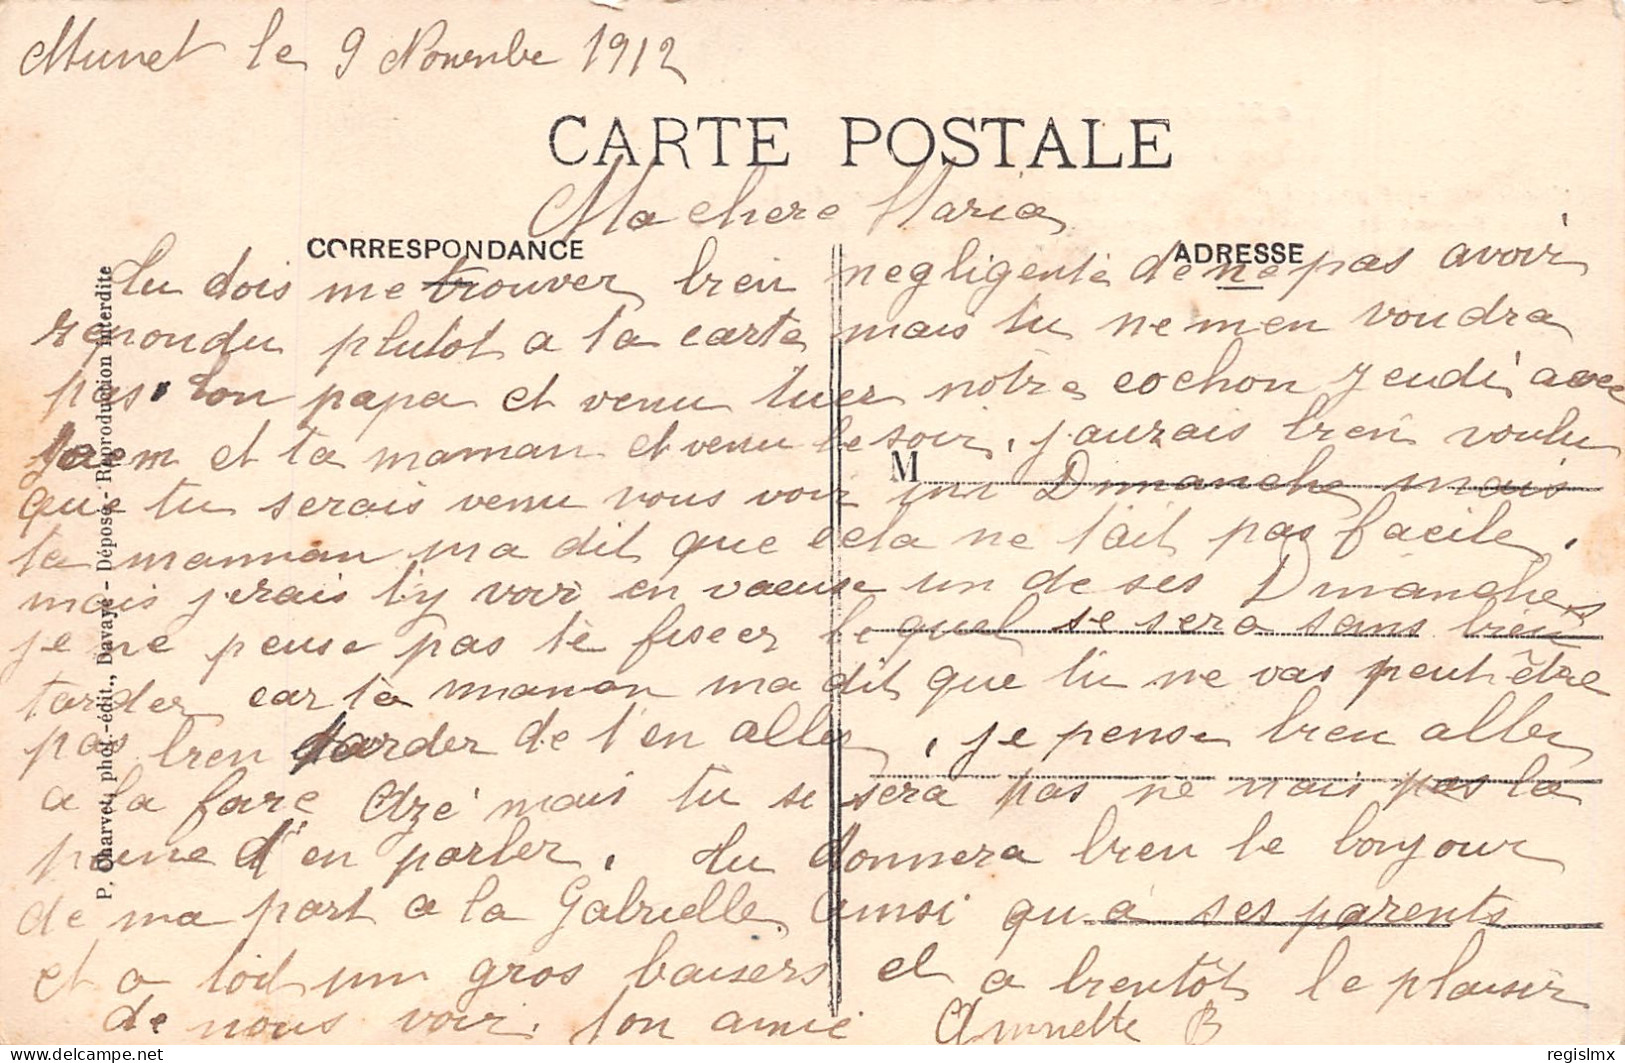 Munet le 9 Novenbe 1912
CARTE POSTALE
Ma chere Maria
CORRESPONDANCE
ADRESSE
tu dois me trouver bien negligente de ne pas avoir
repondu plutot a ta carte mais tu ne men voudra
pas ton papa et venu tuer notre cochon jeudi avec
et ta maman et venu le soir, j'aurais bien voulu
M
que tu serais venu nous voir Dimanche mais
ta maman ma dit que cela ne tait pas facile.
mais jerais ty voir en un de ses Dimanches
je ne peuse pas te fiscer le quel se sera sans bien
tarder car ta maman ma dit que tu ne vas peut être
pas bien tarder de t'en aller, je pense bien aller
a la foire Azé mais tu se sera pas ne vais pas la
peine d'en parler. tu donnera bien le bonjour
de ma part a la Gabrielle ainsi qu a ses parents
et a toid un gros baisers et a bientôt le plaisir
de nous voir. ton amie Annette B
P. Charvet, phot.-édit., Davayé - Déposé - Reproduction interdite
regislmx
www.delcampe.net